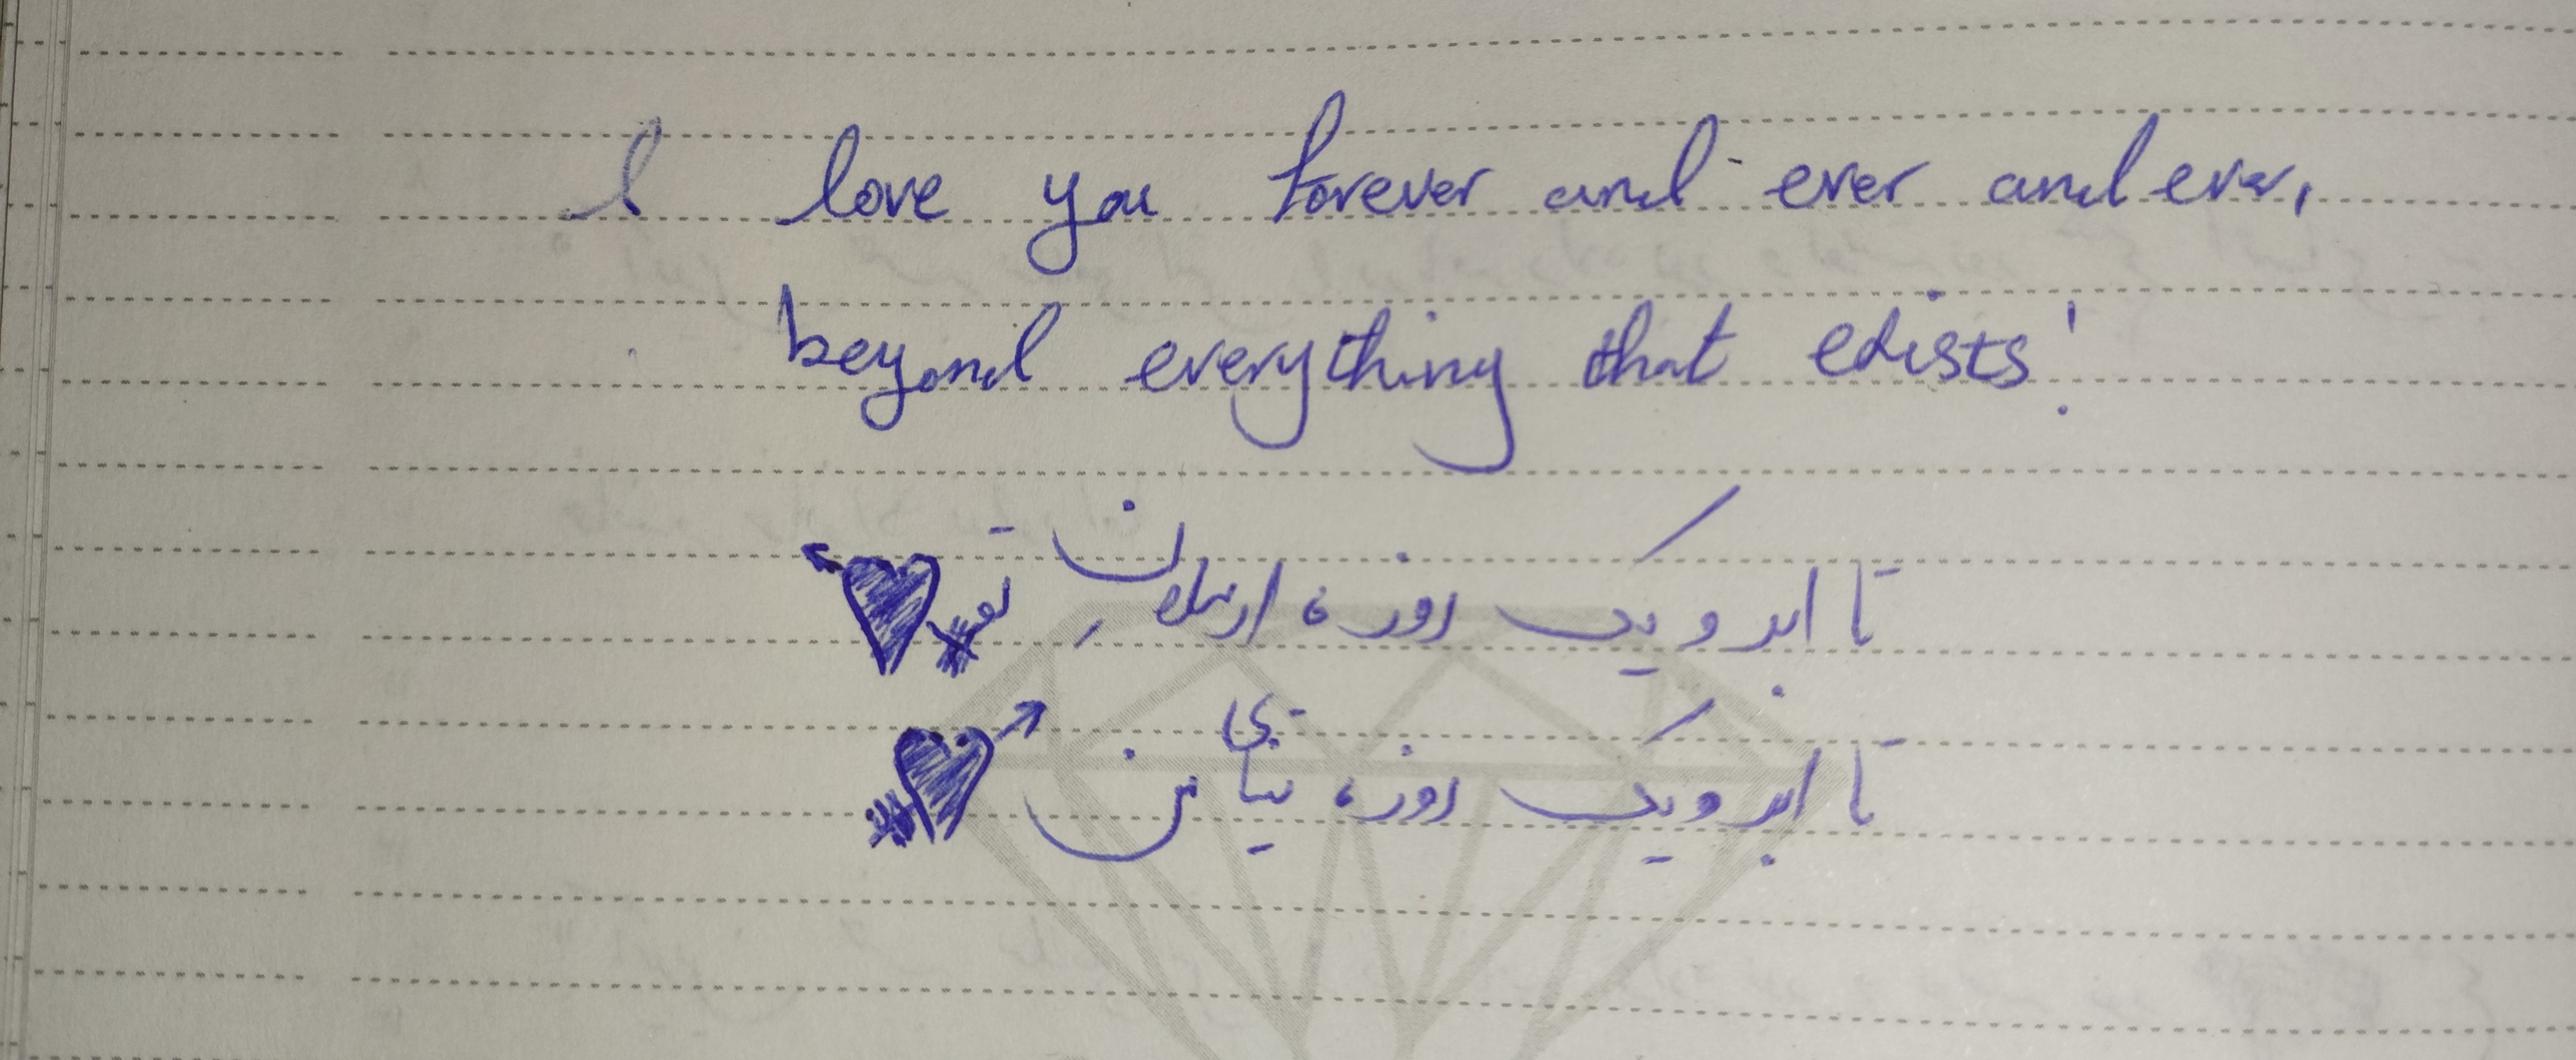 I love you forever and ever and ever,
beyond everything that exists!
تا ابد و یک روز، ارسلانِ تو
تا ابد و یک روز، بیتای من